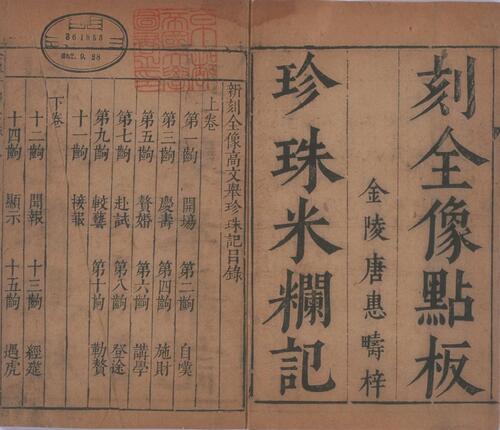 刻全像點板
珍珠米糷記
金陵唐惠疇梓
新刻全像高文舉珍珠記目錄
上卷
第一齣 開場 第二齣 自嘆
第三齣 慶壽 第四齣 施財
第五齣 贅婚 第六齣 講學
第七齣 赴試 第八齣 登途
第九齣 較藝 第十齣 勒贅
十一齣 接報
下卷
十二齣 聞報 十三齣 經筵
十四齣 顯示 十五齣 遇虎
361853